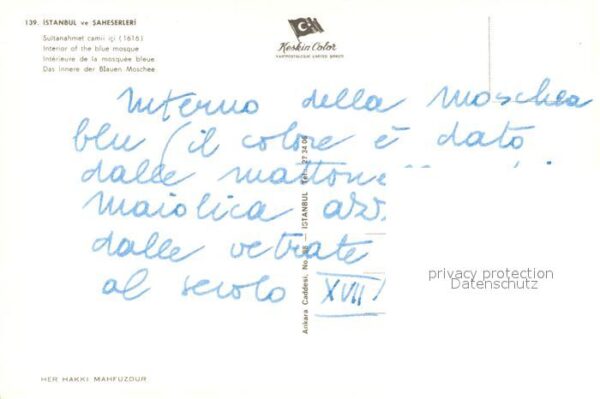 139. İSTANBUL ve ŞAHESERLERİ
Sultanahmet camii içi (1616)
Interior of the blue mosque
Intérieure de la mosquée bleue
Das Innere der Blauen Moschee
Keskin Color
Interno della moschea
blu (il colore è dato
dalle mattone
maiolica azz.
dalle vetrate
al secolo XVII
Ankara Caddesi, No. 98 — İSTANBUL Tel: 27 34 06
privacy protection
Datenschutz
HER HAKKI MAHFUZDUR